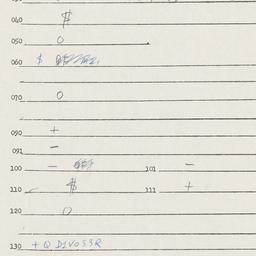 040 $
050 0
060 $
070 0
090 +
091 −
100 − 101 −
110 $ 111 +
120 0
130 + Q DIVOSSR